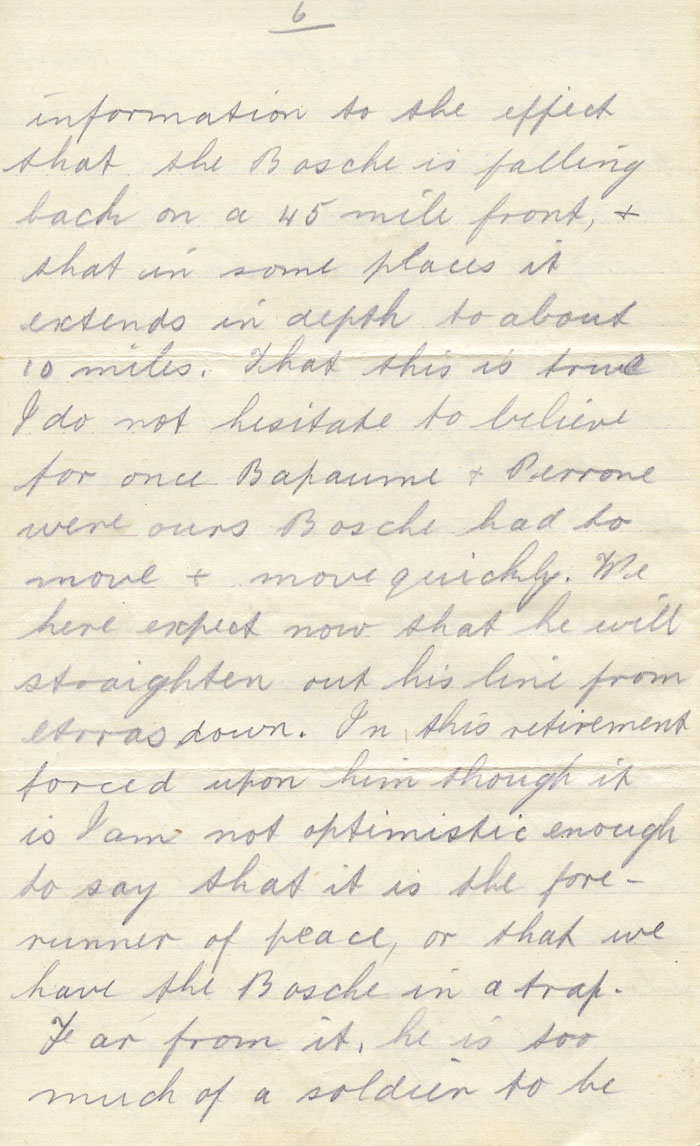 6
information to the effect
that the Bosche is falling
back on a 45 mile front, +
that in some places it
extends in depth to about
10 miles. That this is true
I do not hesitate to believe
for once Bapaume + Perrone
were ours Bosche had to
move + move quickly. We
here expect now that he will
straighten out his line from
Arras down. In this retirement
forced upon him though it
is I am not optimistic enough
to say that it is the fore-
runner of peace, or that we
have the Bosche in a trap.
Far from it, he is too
much of a soldier to be